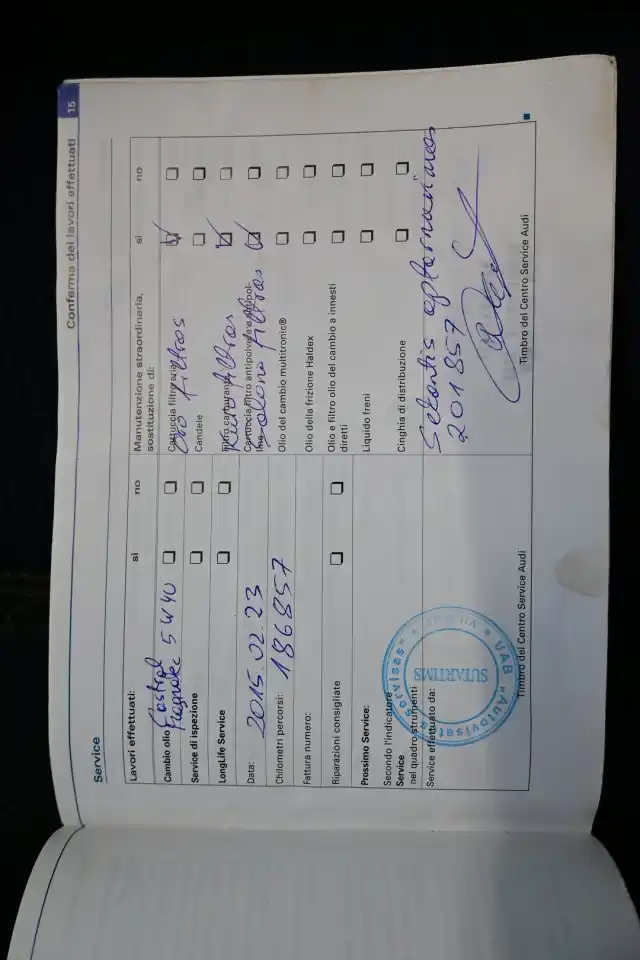 Conferma dei lavori effettuati 15
Service
Lavori effettuati: sì no
Cambio olio Castrol
Magnatec 5W40
Service di ispezione
LongLife Service
Data: 2015.02.23
Chilometri percorsi: 186857
Fattura numero:
Riparazioni consigliate
Prossimo Service:
Secondo l'indicatore
Service
nel quadro strumenti
Service effettuato da:
UAB "Autovisata
SUTARTIMS
Timbro del Centro Service Audi
Manutenzione straordinaria, sì no
sostituzione di:
Cartuccia filtro aria
Oro filtras
Candele
Filtro carburante
Kuro filtras
Cartuccia/filtro antipolvere e antipol-
line
Salono filtras
Olio del cambio multitronic®
Olio della frizione Haldex
Olio e filtro olio del cambio a innesti
diretti
Liquido freni
Cinghia di distribuzione
Sekantis aptarnavimas
201857
Timbro del Centro Service Audi